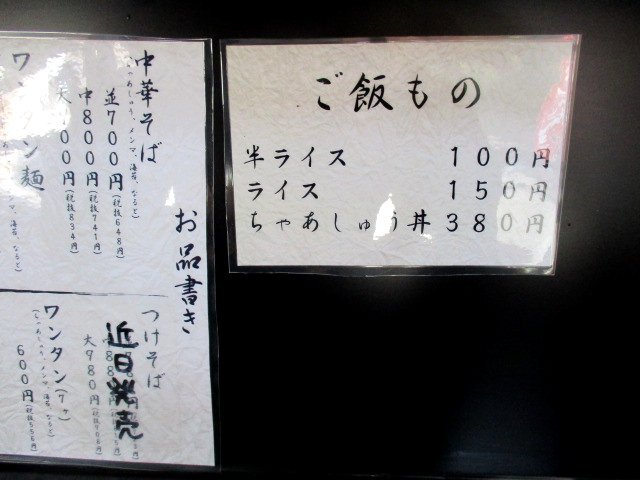 お品書き
中華そば
(ちゃあしゅう、メンマ、海苔、なると)
並700円(税抜648円)
中800円(税抜741円)
大900円(税抜834円)
ワンタン麺
つけそば
近日発売
大980円
ワンタン(7ヶ)
(ちゃあしゅう、メンマ、海苔、なると)
600円(税抜556円)
ご飯もの
半ライス 100円
ライス 150円
ちゃあしゅう丼 380円